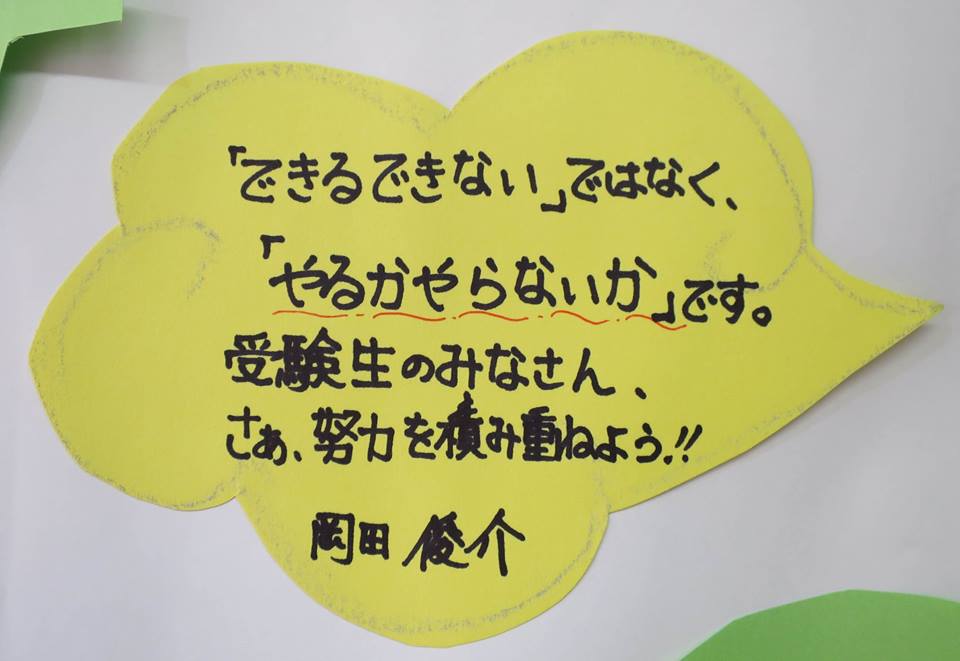 「できるできない」ではなく、
「やるかやらないか」です。
受験生のみなさん、
さあ、努力を積み重ねよう!!
岡田 俊介